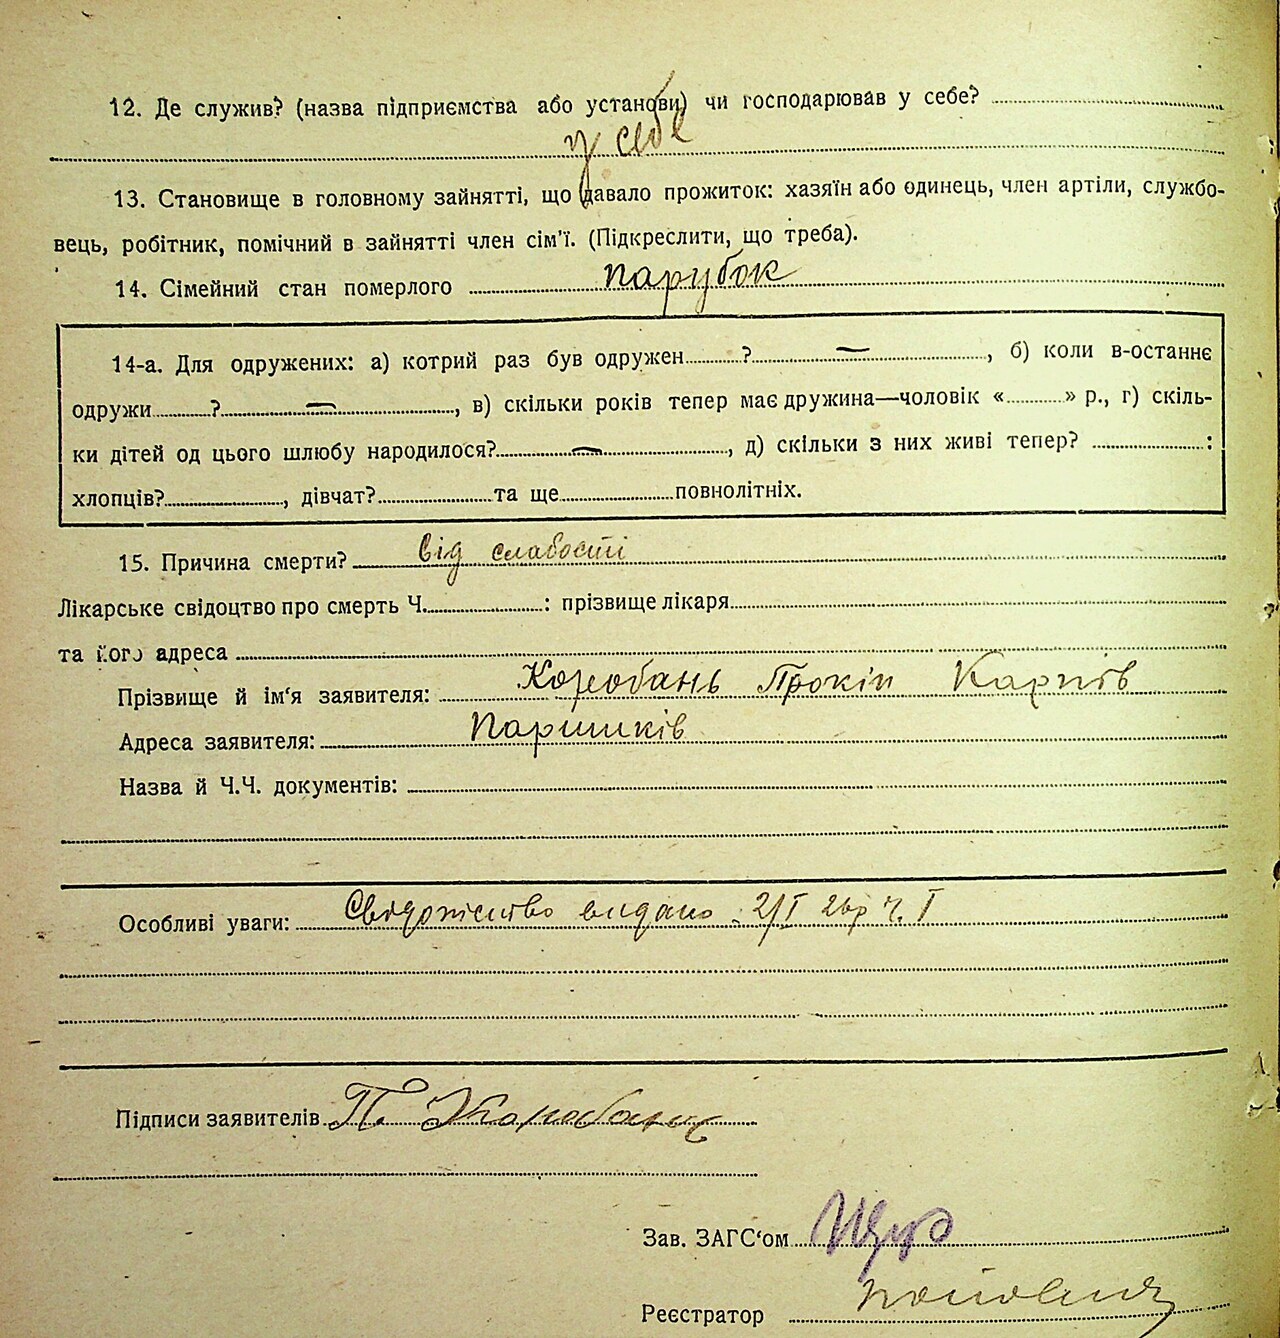 12. Де служив? (назва підприємства або установи) чи господарював у себе?
у себе
13. Становище в головному зайнятті, що давало прожиток: хазяїн або одинець, член артіли, службо-
вець, робітник, помічний в зайнятті член сім'ї. (Підкреслити, що треба).
14. Сімейний стан померлого парубок
14-а. Для одружених: а) котрий раз був одружен ? —, б) коли в-останнє
одружи ? —, в) скільки років тепер має дружина—чоловік « » р., г) скіль-
ки дітей од цього шлюбу народилося? —, д) скільки з них живі тепер? :
хлопців? , дівчат? та ще повнолітніх.
15. Причина смерти? від слабости
Лікарське свідоцтво про смерть Ч. : прізвище лікаря
та його адреса
Прізвище й ім'я заявителя: Коробань Прокіп Карпів
Адреса заявителя: Паришків
Назва й Ч.Ч. документів:
Особливі уваги: видано 2/I 26р Ч. I
Підписи заявителів П. Коробань
Зав. ЗАГС'ом
Реєстратор